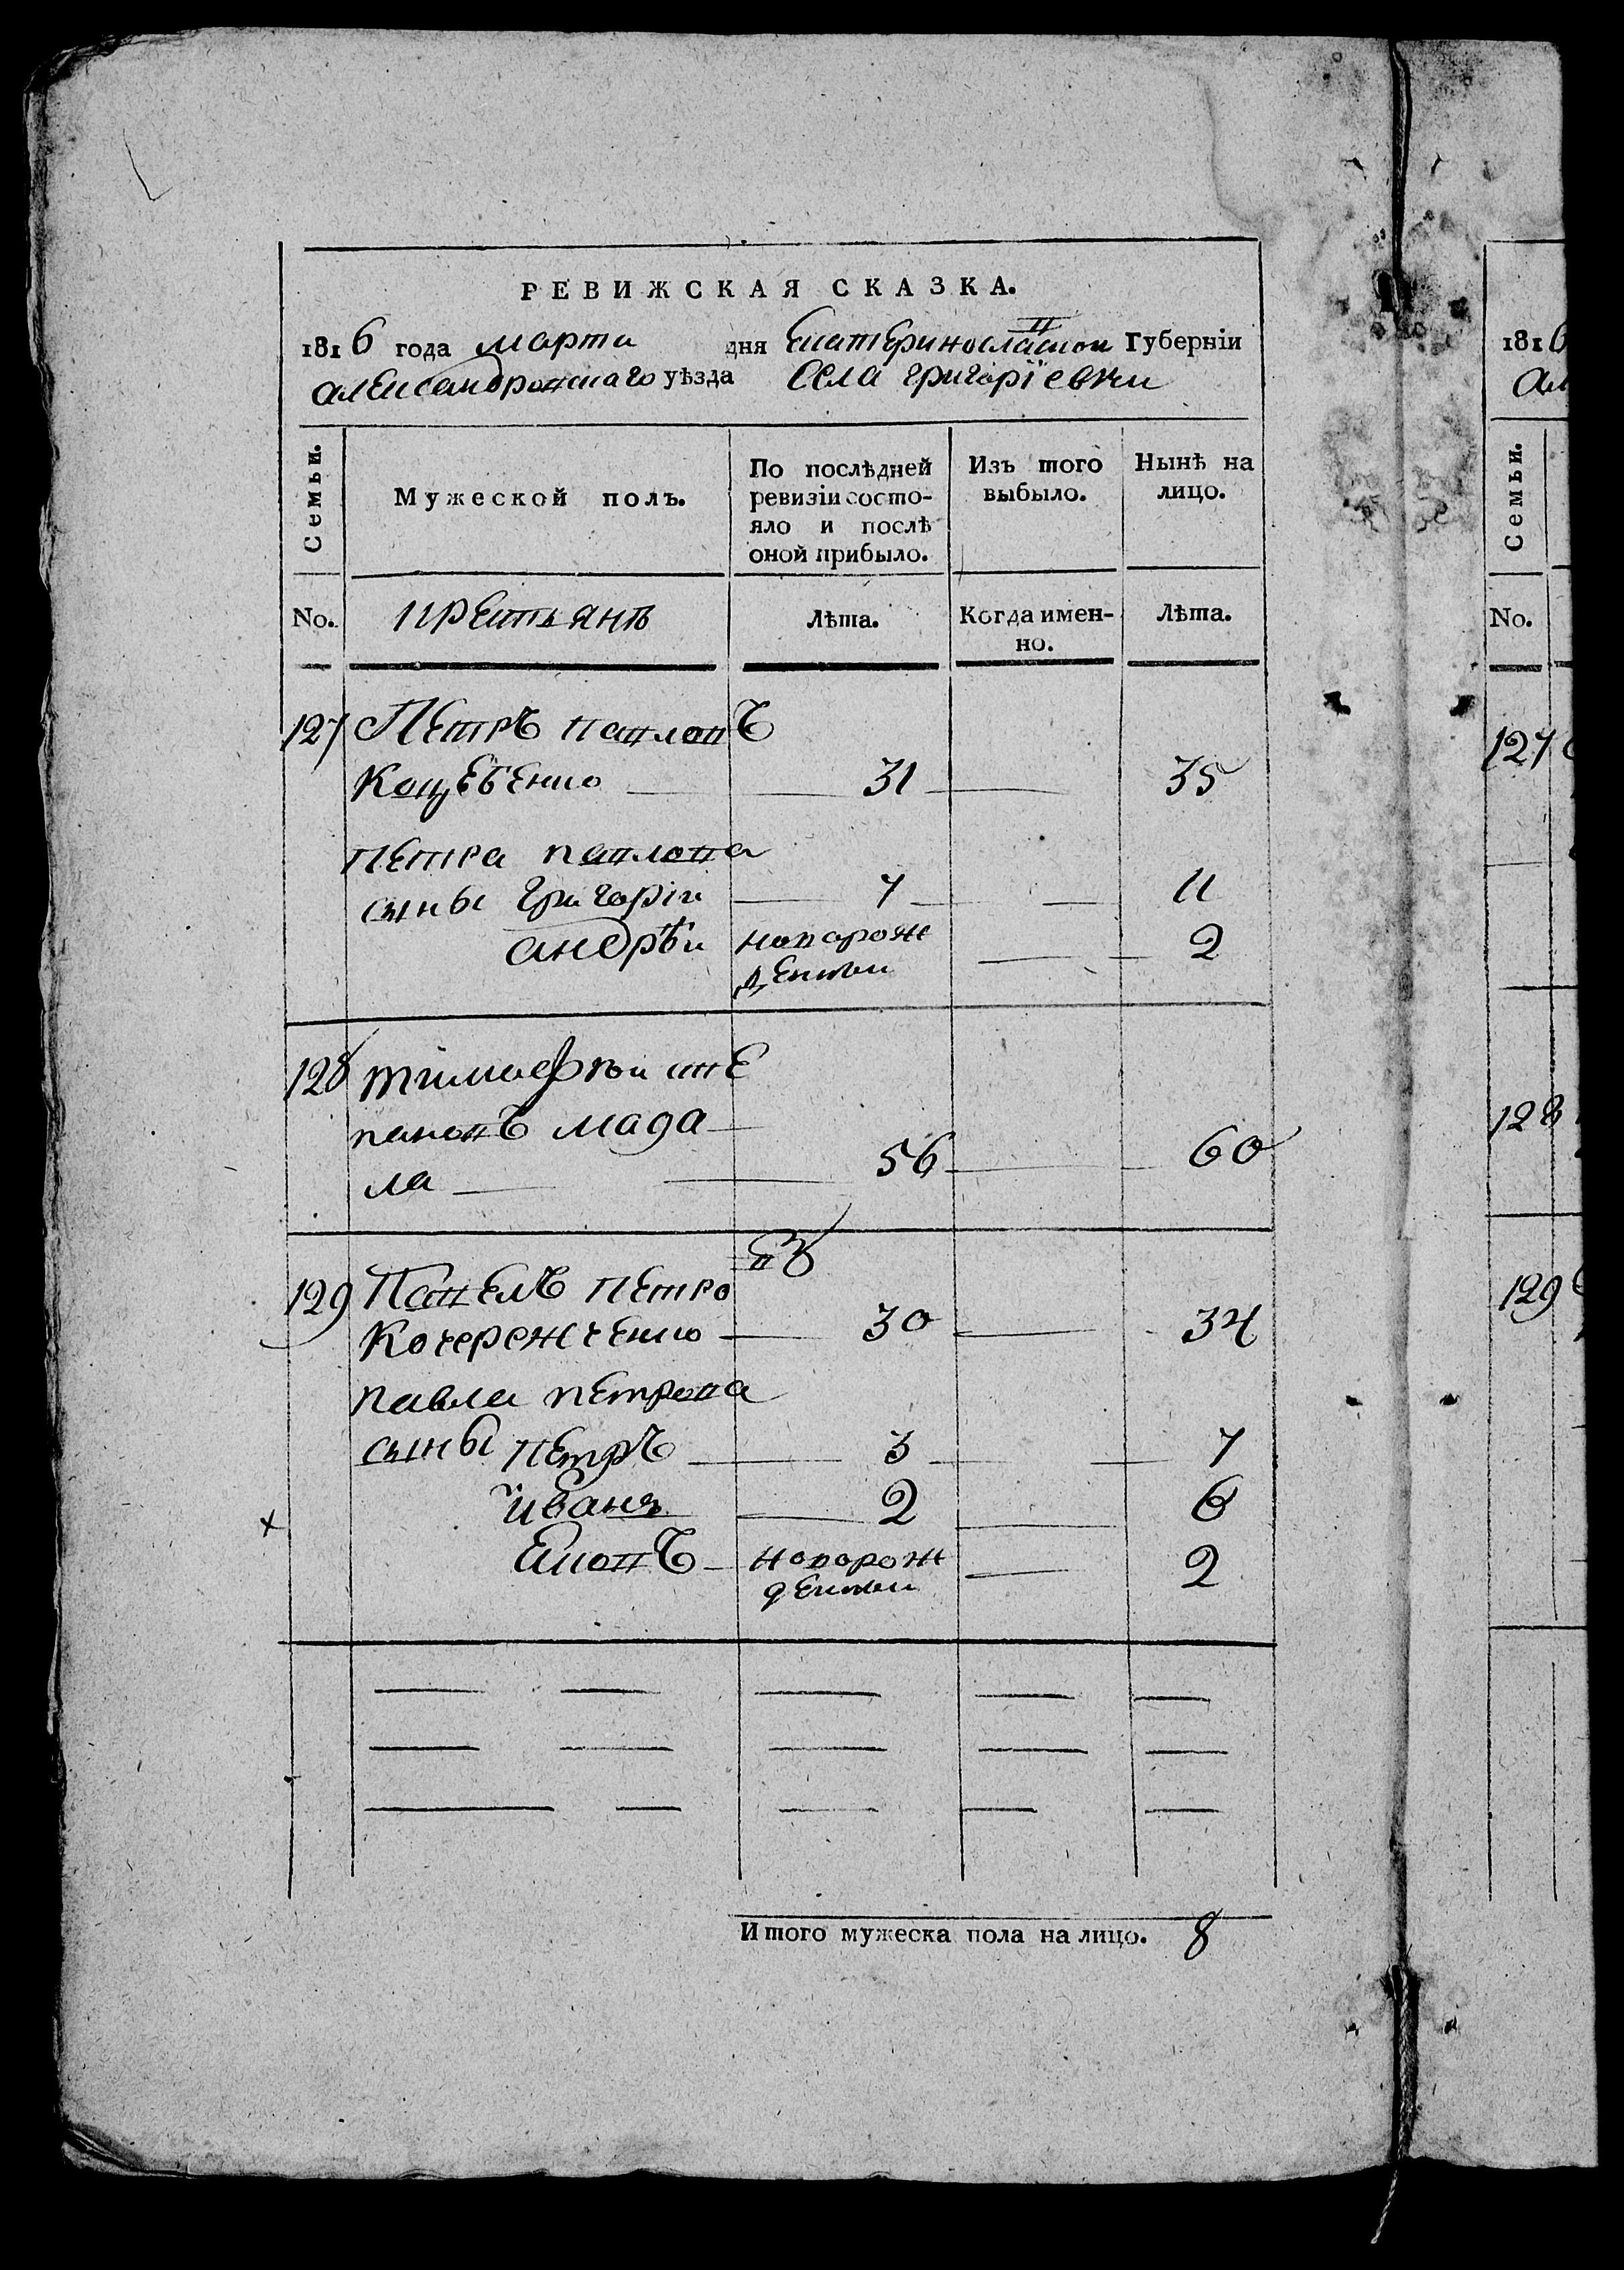 РЕВИЖСКАЯ СКАЗКА.
1816 года марта дня Екатеринославской Губерніи
александровскаго уѣзда села григоріевки
Семьи.
Мужеской полъ.
По послѣдней
ревизіи состо-
яло и послѣ
оной прибыло.
Изъ того
выбыло.
Нынѣ на
лицо.
No. крестьянѣ Лѣта. Когда имен-
но. Лѣта.
127 Петръ павловъ
Коцевенко 31 35
петра павлова
сыны григорій 7 11
андрѣй новорож
денный 2
128 тимофѣй сте
пановъ мада
ла 56 60
129 Павелъ петро
въ
Кочережченко 30 34
павла петрова
сыны петръ 3 7
иванъ 2 6
новорож
денный 2
Итого мужеска пола на лицо. 8
1816
No.
Семьи.
127
128
129